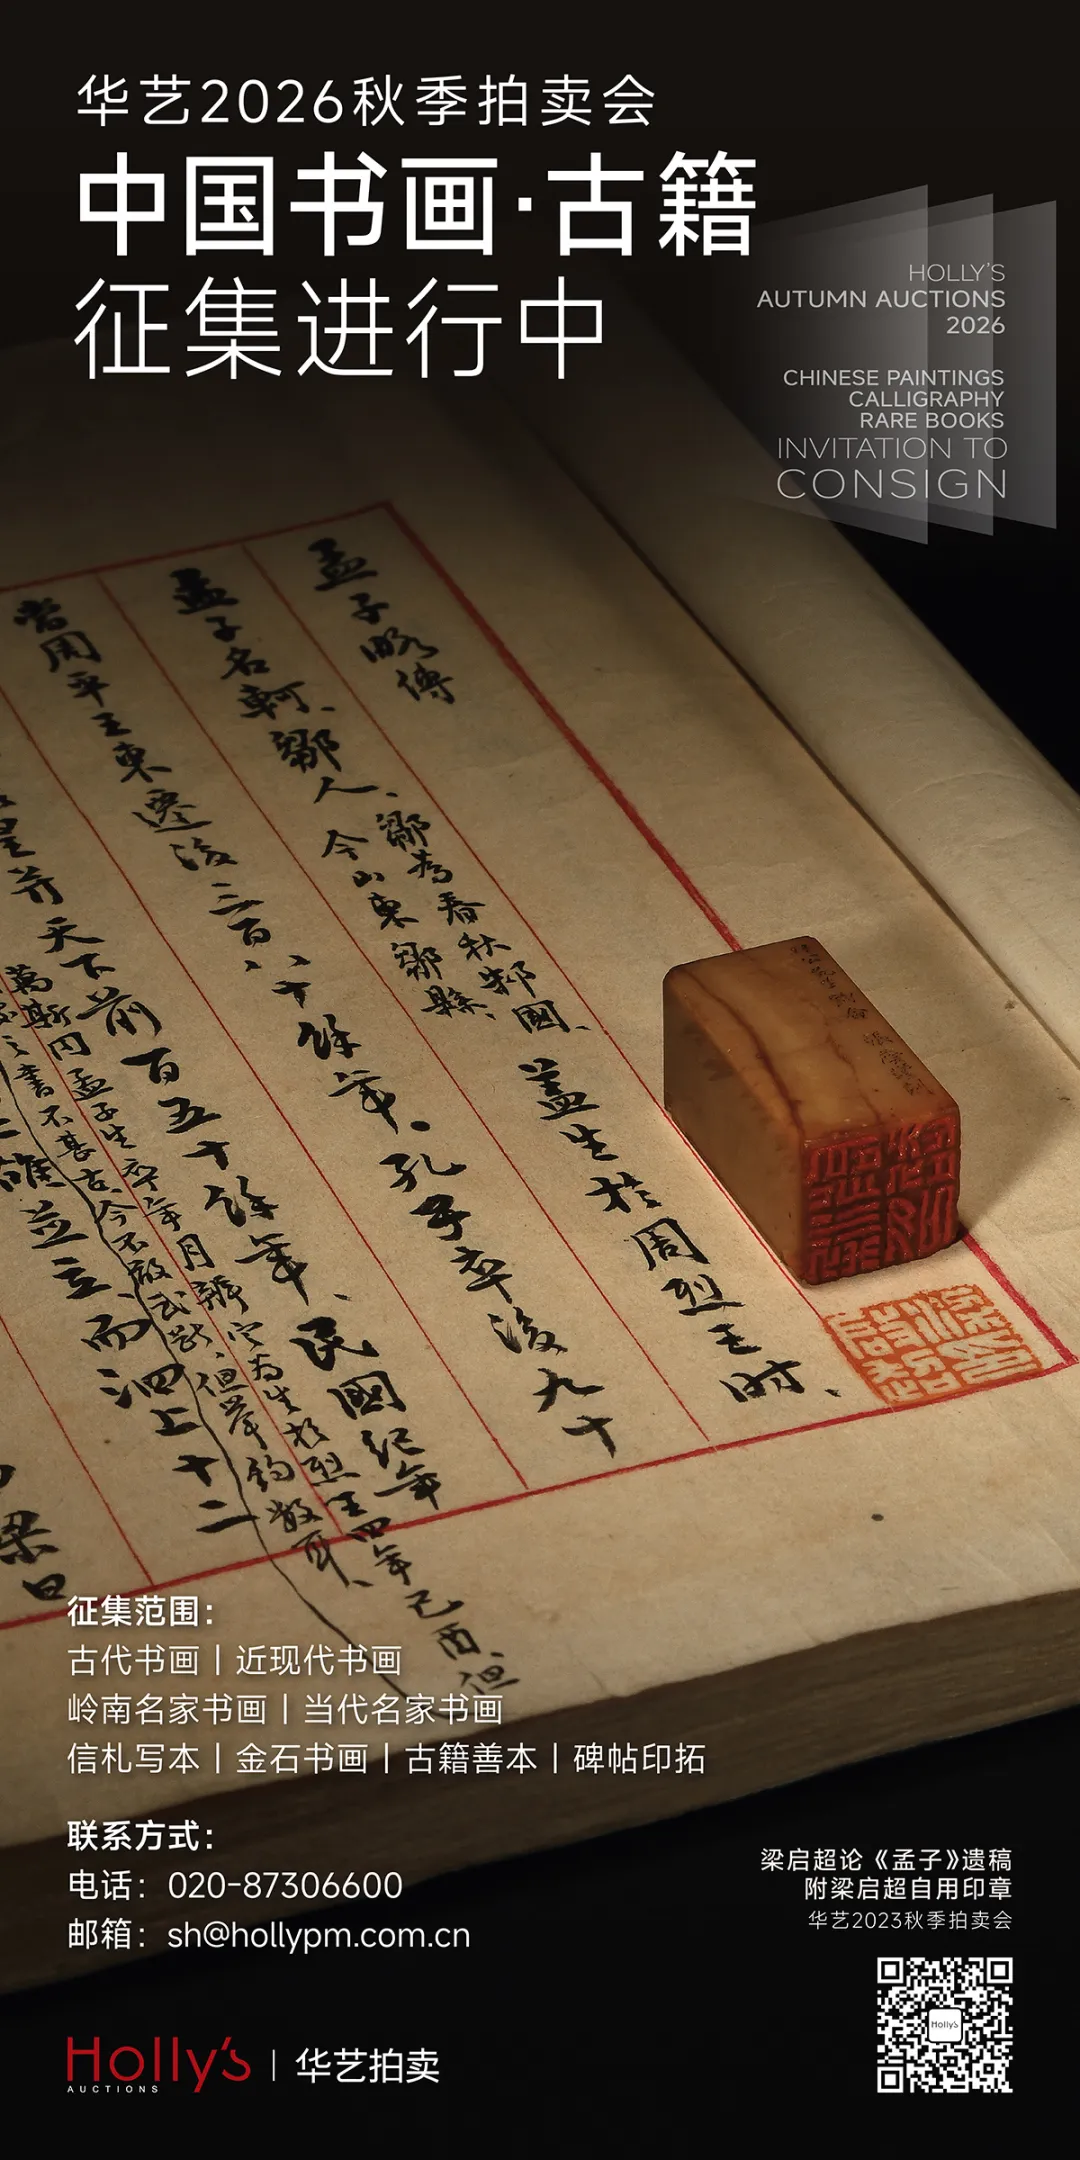 华艺2026秋季拍卖会
中国书画·古籍
征集进行中
HOLLY'S
AUTUMN AUCTIONS
2026
CHINESE PAINTINGS
CALLIGRAPHY
RARE BOOKS
INVITATION TO
CONSIGN
孟子略傳
孟子名軻、鄒人、
鄒為春秋邾國、
今山東鄒縣、
蓋生於周烈王时、
當周平王東遷後三百八十餘年。孔子卒後九十
皇前天下前百五十餘年、民國紀年
梁
曰
征集范围：
古代书画丨近现代书画
岭南名家书画丨当代名家书画
信札写本丨金石书画丨古籍善本丨碑帖印拓
联系方式：
电话：020-87306600
邮箱：sh@hollypm.com.cn
梁启超论《孟子》遗稿
附梁启超自用印章
华艺2023秋季拍卖会
Holly's
Holly's
AUCTIONS
华艺拍卖